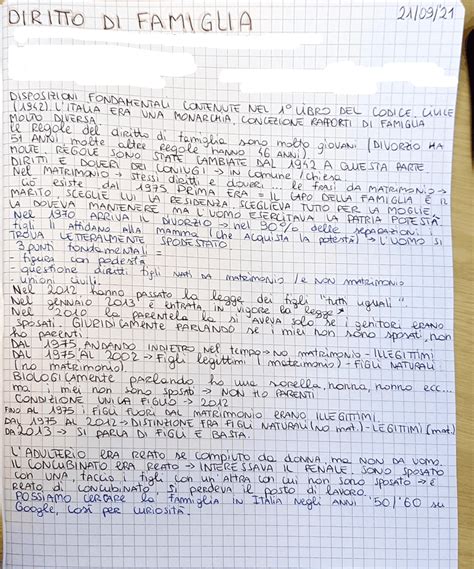 DIRITTO DI FAMIGLIA
21/09/21
DISPOSIZIONI FONDAMENTALI CONTENUTE NEL 1° LIBRO DEL CODICE CIVILE
(1942). L'ITALIA ERA UNA MONARCHIA. CONCEZIONE RAPPORTI DI FAMIGLIA
MOLTO DIVERSA.
le regole del diritto di famiglia sono molto giovani (DIVORZIO HA
51 ANNI molte altre regole hanno 46 anni).
MOLTE REGOLE SONO STATE CAMBIATE DAL 1942 A QUESTA PARTE.
DIRITTI E DOVERI DEI CONIUGI → IN COMUNE / CHIESA.
NEL MATRIMONIO → STESSI DIRITTI E DOVERI ... le frasi da MATRIMONIO →
ciò esiste dal 1975 PRIMA ERA = IL CAPO DELLA FAMIGLIA È IL
MARITO SCEGLIE LUI LA RESIDENZA, SCEGLIEVA TUTTO PER LA MOGLIE,
LA DOVEVA MANTENERE MA L'UOMO ESERCITAVA LA PATRIA POTESTÀ
Nel 1970 ARRIVA IL DIVORZIO → nel 90% delle SEPARAZIONI i
figli li affidano alla mamma (che acquista la potestà) → L'UOMO SI
TROVA LETTERALMENTE SPODESTATO.
3 punti fondamentali =
- figura con podestà
- questione diritti figli nati da matrimonio / e non matrimonio
- unioni civili.
Nel 2012 hanno passato la legge dei figli "tutti uguali".
Nel gennaio 2013 è entrata in vigore la legge
Nel 2010 la parentela la si aveva solo se i genitori erano
sposati. GIURIDICAMENTE PARLANDO se i miei non sono sposati, non
ho parenti.
DAL 1975 ANDANDO INDIETRO NEL tempo → NO MATRIMONIO - ILLEGITTIMI
DAL 1975 AL 2002 → Figli legittimi (matrimonio) - FIGLI NATURALI
(no matrimonio).
BIOLOGICAMENTE parlando ho una sorella, nonna, nonno ecc...
ma i miei non sono sposati → NON HO PARENTI
CONDIZIONE UNICA FIGLIO → 2012
FINO AL 1975 I FIGLI FUORI DAL MATRIMONIO ERANO ILLEGITTIMI
DAL 1975 AL 2012 → DISTINZIONE FRA FIGLI NATURALI (no mat.) - LEGITTIMI (mat.)
DA 2013 → SI PARLA DI FIGLI E BASTA.
L'ADULTERIO ERA REATO SE COMPIUTO DA DONNA, MA NON DA UOMO.
IL CONCUBINATO ERA REATO → INTERESSAVA IL PENALE. SONO SPOSATO
CON UNA, faccio i figli con un'altra con cui non sono sposato → è
REATO DI CONCUBINATO, SI PERDEVA IL POSTO DI LAVORO.
POSSIAMO CERCARE la famiglia in Italia negli anni '50/'60 su
Google, così per curiosità.